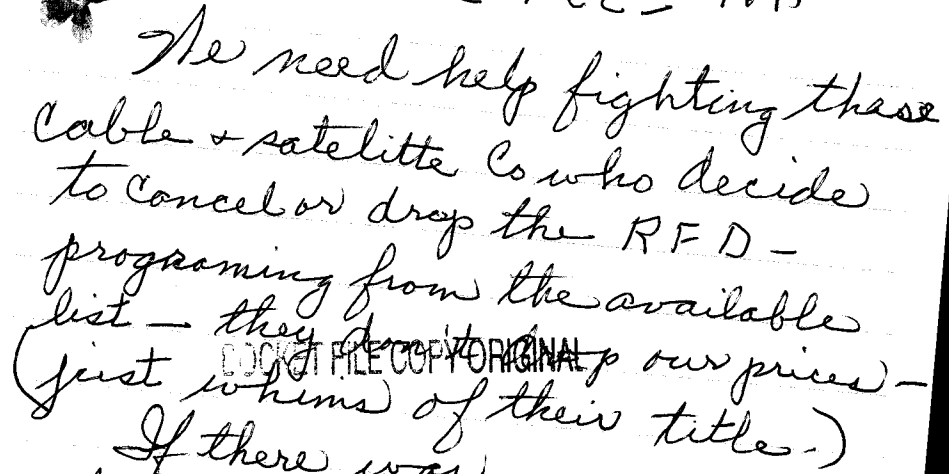 We need help fighting these
cable & satelitte Co who decide
to cancel or drop the RFD -
programing from the available
list - they don't drop our prices -
DOCKET FILE COPY ORIGINAL
(just whims of their title.)
If there was